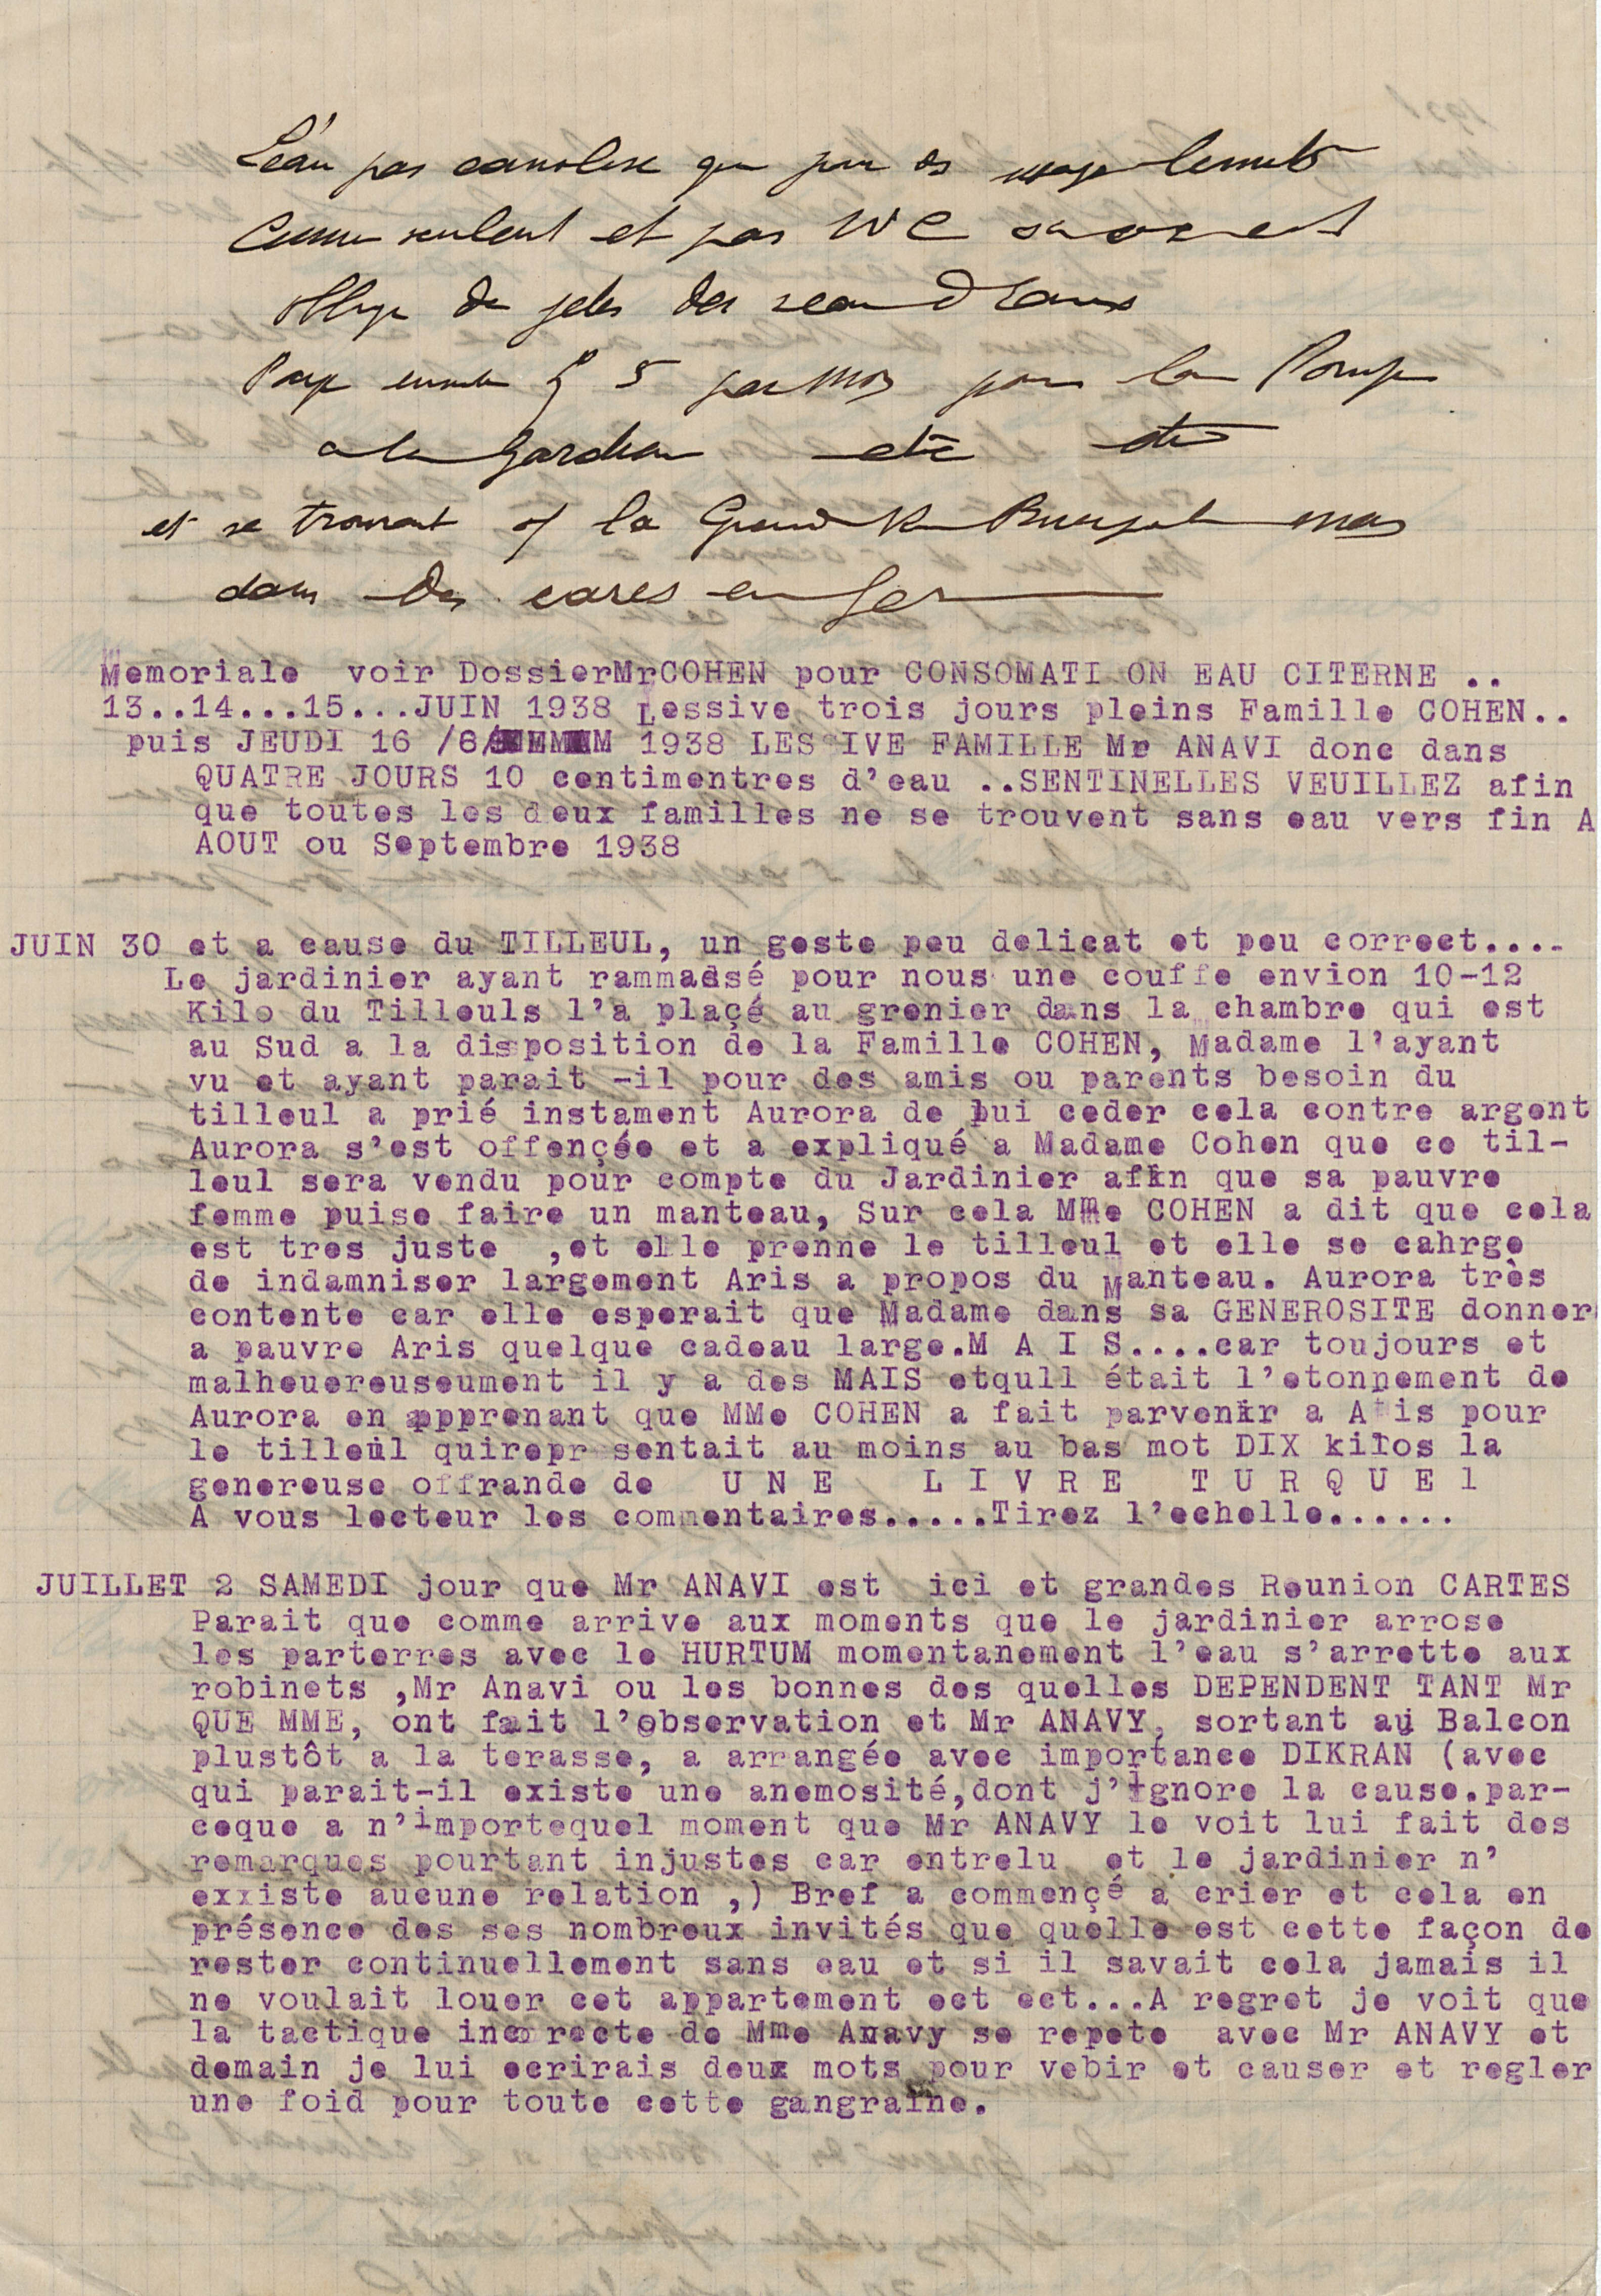 L'eau pas canalise que pour
seulent et pas WC
oblige de jeter des seau d'eaux
Paye 5 par mois pour la Pompe
a le Gardien etc etc
et se trouvant s/ la Grand mas
dans des en fer
Memoriale voir DossierMrCOHEN pour CONSOMATI ON EAU CITERNE ..
13..14...15...JUIN 1938 Lessive trois jours pleins Famille COHEN..
puis JEUDI 16 /6/ 1938 LES IVE FAMILLE Mr ANAVI donc dans
QUATRE JOURS 10 centimentres d'eau ..SENTINELLES VEUILLEZ afin
que toutes les deux familles ne se trouvent sans eau vers fin A
AOUT ou Septembre 1938
JUIN 30 et a cause du TILLEUL, un geste peu delicat et peu correct....
Le jardinier ayant rammassé pour nous une couffe envion 10-12
Kilo du Tilleuls l'a plaçé au grenier dans la chambre qui est
au Sud a la disposition de la Famille COHEN, Madame l'ayant
vu et ayant parait -il pour des amis ou parents besoin du
tilleul a prié instament Aurora de lui ceder cela contre argent
Aurora s'est offençée et a expliqué a Madame Cohen que ce til-
leul sera vendu pour compte du Jardinier afin que sa pauvre
femme puise faire un manteau, Sur cela Mme COHEN a dit que cela
est tres juste ,et elle prenne le tilleul et elle se cahrge
de indamniser largement Aris a propos du Manteau. Aurora très
contente car elle esperait que Madame dans sa GENEROSITE donner
a pauvre Aris quelque cadeau large.M A I S....car toujours et
malheuereuseument il y a des MAIS etqull était l'etonnement de
Aurora en appprenant que MMe COHEN a fait parvenir a A is pour
le tilleul quirepr sentait au moins au bas mot DIX kilos la
genereuse offrande de U N E L I V R E T U R Q U E l
A vous lecteur les commentaires.....Tirez l'echelle......
JUILLET 2 SAMEDI jour que Mr ANAVI est ici et grandes Reunion CARTES
Parait que comme arrive aux moments que le jardinier arrose
les parterres avec le HURTUM momentanement l'eau s'arrette aux
robinets ,Mr Anavi ou les bonnes des quelles DEPENDENT TANT Mr
QUE MME, ont fait l'observation et Mr ANAVY, sortant au Balcon
plustôt a la terasse, a arrangée avec importance DIKRAN (avec
qui parait-il existe une anemosité,dont j'ignore la cause.par-
ceque a n'importequel moment que Mr ANAVY le voit lui fait des
remarques pourtant injustes car entrelu et le jardinier n'
exxiste aucune relation ,) Bref a commençé a crier et cela en
présence des ses nombreux invités que quelle est cette façon de
rester continuellement sans eau et si il savait cela jamais il
ne voulait louer cet appartement ect ect...A regret je voit que
la tactique incorrecte de Mme Anavy se repete avec Mr ANAVY et
demain je lui ecrirais deux mots pour vebir et causer et regler
une foid pour toute cette gangraine.